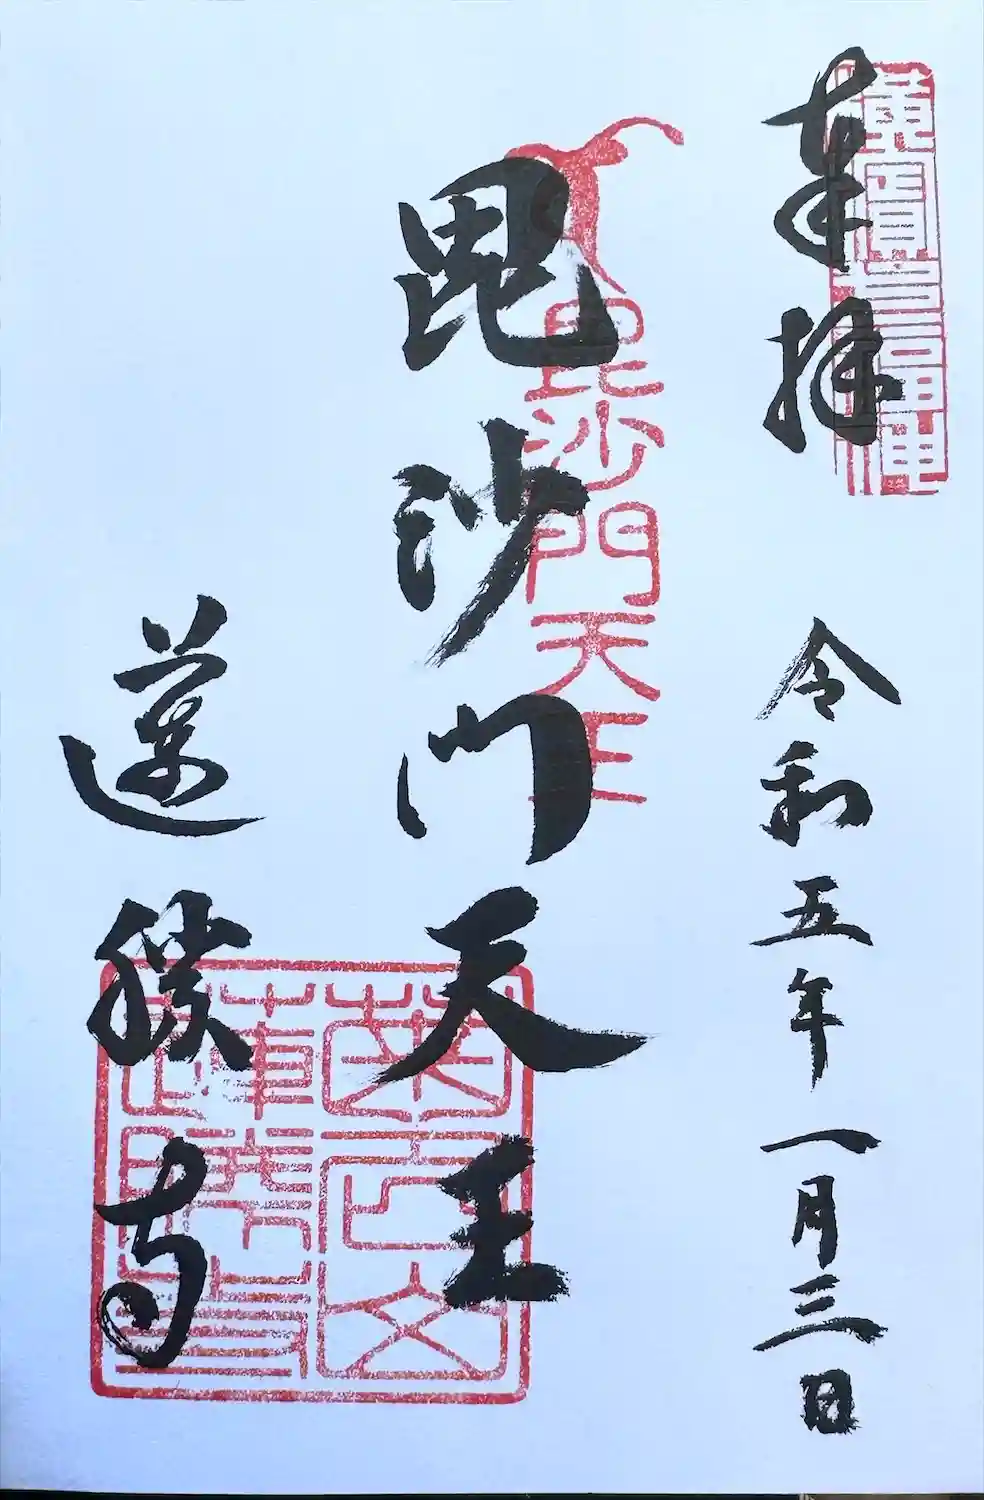 奉拝
令和五年一月三日
毘沙門天王
毘沙門天王
蓮勝寺